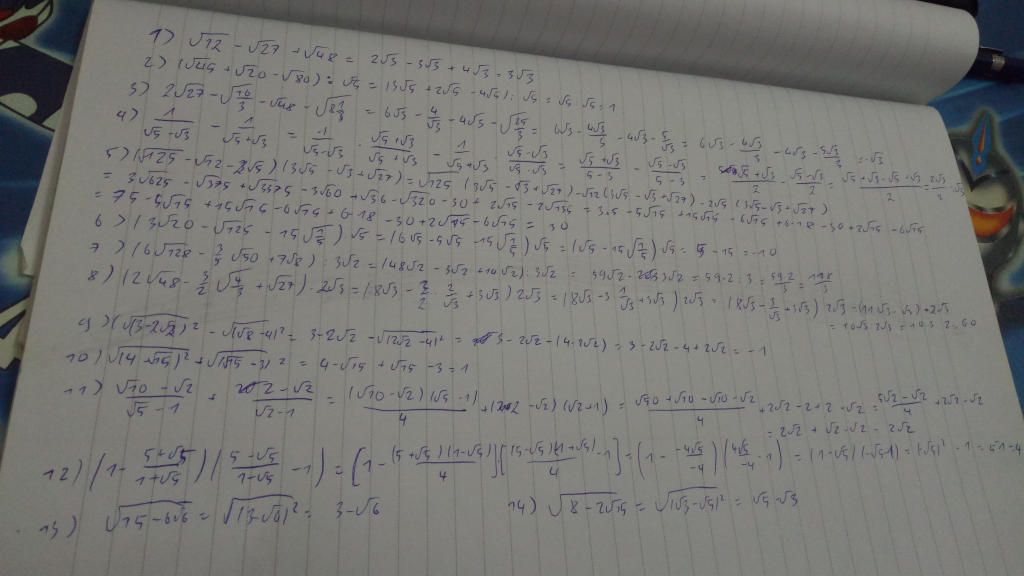 1) √12 - √27 + √48 = 2√3 - 3√3 + 4√3 = 3√3
2) (√45 + √20 - √80) : √5 = (3√5 + 2√5 - 4√5) : √5 = √5 : √5 = 1
3) 2√27 - √(16/3) - √48 - √(8 1/3) = 6√3 - 4/√3 - 4√3 - √(25/3) = 6√3 - 4√3/3 - 4√3 - 5/√3 = 6√3 - 4√3/3 - 4√3 - 5√3/3 = -√3
4) 1/(√5-√3) - 1/(√5+√3) = 1/(√5-√3) · (√5+√3)/(√5+√3) - 1/(√5+√3) · (√5-√3)/(√5-√3) = (√5+√3)/(5-3) - (√5-√3)/(5-3) = (√5+√3)/2 - (√5-√3)/2 = (√5+√3-√5+√3)/2 = 2√3/2 = √3
5) (√125 - √12 - 2√5)(3√5 - √3 + √27) = √125 (3√5 - √3 + √27) - √12 (3√5 - √3 + √27) - 2√5 (3√5 - √3 + √27)
= 3√625 - √375 + √3375 - 3√60 + √36 - √320 - 30 + 2√15 - 2√135 = 75 - 5√15 + 15√15 - 6√15 + 6 - 18 - 30 + 2√15 - 6√15
= 75 - 5√15 + 15√15 - 6√15 + 6 - 18 - 30 + 2√15 - 6√15 = 30
6) (3√20 - √125 - 15√(1/5)) √5 = (6√5 - 5√5 - 15√(1/5)) √5 = (√5 - 15√(1/5)) √5 = 5 - 15 = -10
7) (6√128 - 3/5 √50 + 7√8) : 3√2 = (48√2 - 3√2 + 14√2) : 3√2 = 59√2 : 3√2 =
8) (2√48 - 3/2 √(4/3) + √27) · 2√3 = (8√3 - 3/2 · 2/√3 + 3√3) 2√3 = (8√3 - 3 · 1/√3 + 3√3) 2√3 = (8√3 - 3/√3 + 3√3) 2√3 = (11√3 - √3) · 2√3
= 10√3 · 2√3 = 10 · 3 · 2 = 60
9) (√(3-2√2))² - √(√8-4)² = 3 - 2√2 - √(2√2-4)² = 3 - 2√2 - (4-2√2) = 3 - 2√2 - 4 + 2√2 = -1
10) √(4-√15)² + √(√15-3)² = 4 - √15 + √15 - 3 = 1
11) (√10-√2)/(√5-1) + (2-√2)/(√2-1) = (√10-√2)(√5-1)/4 + (2-√2)(√2+1) = (√50+√10-√10-√2)/4 + 2√2 - 2 + 2 - √2 = (5√2-√2)/4 + 2√2 - √2
= 2√2 + √2 - √2 = 2√2
12) (1 - (5+√5)/(1+√5)) ((5-√5)/(1-√5) - 1) = [1 - (5+√5)(1-√5)/4] [(5-√5)(1+√5)/4 - 1] = (1 - -4√5/-4) (4√5/-4 - 1) = (1-√5)(-√5-1) = (√5)² - 1 = 5 - 1 = 4
13) √(15-6√6) = √(3-√6)² = 3-√6
14) √(8-2√15) = √(√3-√5)² = √5-√3